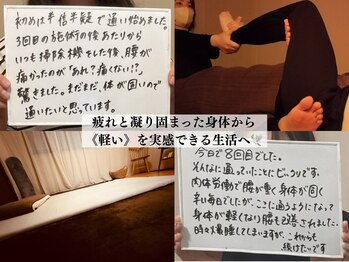 初めは半信半疑で通い始めました。
3回目の施術の後あたりから
いつも掃除機をした後、腰が
痛かったのが「あれ?痛くない!?」
驚きました。まだまだ、体が固いので
通いたいと思っています。
疲れと凝り固まった身体から
《軽い》を実感できる生活へ
今日で8回目でした。
そんなに通っていたことにビックリです。
肉体労働で腰が重く身体が固く
辛い毎日でしたが、ここに通うようになって
身体が軽くなり腰も改善されました。
時々爆睡してしまいますが、これからも
続けたいです